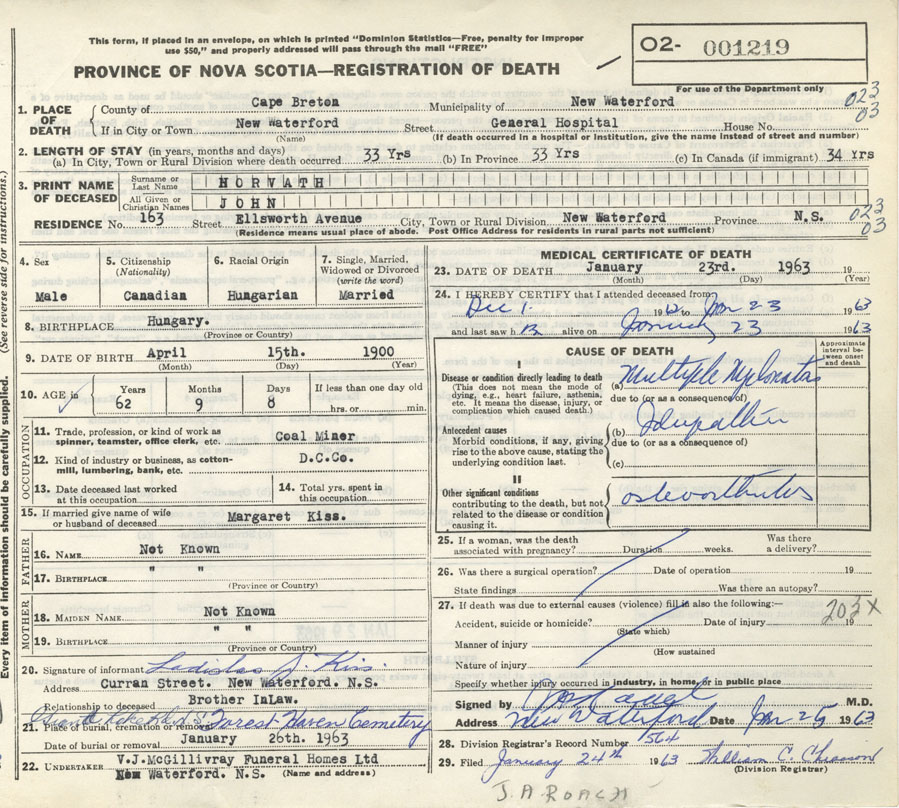 This form, if placed in an envelope, on which is printed "Dominion Statistics—Free, penalty for improper
use $50," and properly addressed will pass through the mail "FREE"
O2- 001219
PROVINCE OF NOVA SCOTIA—REGISTRATION OF DEATH
For use of the Department only
023
03
1. PLACE OF DEATH
County of Cape Breton Municipality of New Waterford
If in City or Town New Waterford Street General Hospital House No.
(Name) (If death occurred in a hospital or institution, give the name instead of street and number)
2. LENGTH OF STAY (in years, months and days)
(a) In City, Town or Rural Division where death occurred 33 Yrs (b) In Province 33 Yrs (c) In Canada (if immigrant) 34 Yrs
3. PRINT NAME OF DECEASED
Surname or Last Name HORVATH
All Given or Christian Names JOHN
RESIDENCE No. 163 Street Ellsworth Avenue City, Town or Rural Division New Waterford Province N.S.
(Residence means usual place of abode. Post Office Address for residents in rural parts not sufficient)
023
03
4. Sex
Male
5. Citizenship (Nationality)
Canadian
6. Racial Origin
Hungarian
7. Single, Married, Widowed or Divorced (write the word)
Married
8. BIRTHPLACE Hungary.
(Province or Country)
9. DATE OF BIRTH April 15th. 1900
(Month) (Day) (Year)
10. AGE in
Years Months Days If less than one day old
62 9 8 hrs. or min.
OCCUPATION
11. Trade, profession, or kind of work as spinner, teamster, office clerk, etc. Coal Miner
12. Kind of industry or business, as cotton-mill, lumbering, bank, etc. D.C.Co.
13. Date deceased last worked at this occupation
14. Total yrs. spent in this occupation
15. If married give name of wife or husband of deceased Margaret Kiss.
FATHER
16. NAME Not Known
17. BIRTHPLACE " "
(Province or Country)
MOTHER
18. MAIDEN NAME Not Known
19. BIRTHPLACE " "
(Province or Country)
20. Signature of informant Ladislas J. Kiss.
Address Curran Street. New Waterford. N.S.
Relationship to deceased Brother InLaw.
21. Place of burial, cremation or removal Forest Haven Cemetery
Date of burial or removal January 26th. 1963
22. UNDERTAKER V.J.McGillivray Funeral Homes Ltd
New Waterford. N.S. (Name and address)
MEDICAL CERTIFICATE OF DEATH
23. DATE OF DEATH January 23rd. 1963 19
(Month) (Day) (Year)
24. I HEREBY CERTIFY that I attended deceased from
Dec 1 1962 to Jan 23 1963
and last saw h alive on January 23 1963
CAUSE OF DEATH
Approximate interval between onset and death
I
Disease or condition directly leading to death
(This does not mean the mode of dying, e.g., heart failure, asthenia, etc. It means the disease, injury, or complication which caused death.)
(a) Multiple
due to (or as a consequence of)
Antecedent causes
Morbid conditions, if any, giving rise to the above cause, stating the underlying condition last.
(b)
due to (or as a consequence of)
(c)
II
Other significant conditions
contributing to the death, but not related to the disease or condition causing it.
osteoarthritis
25. If a woman, was the death associated with pregnancy? Duration weeks. Was there a delivery?
26. Was there a surgical operation? Date of operation 19
State findings Was there an autopsy?
27. If death was due to external causes (violence) fill in also the following:—
203X
Accident, suicide or homicide? Date of injury 19
(State which)
Manner of injury
(How sustained
Nature of injury
Specify whether injury occurred in industry, in home, or in public place
Signed by M.D.
Address New Waterford Date Jan 25 1963
28. Division Registrar's Record Number 564
29. Filed January 24th 1963 William C. Chiasson
(Division Registrar)
J.A ROACH
(See reverse side for instructions.)
Every item of information should be carefully supplied.